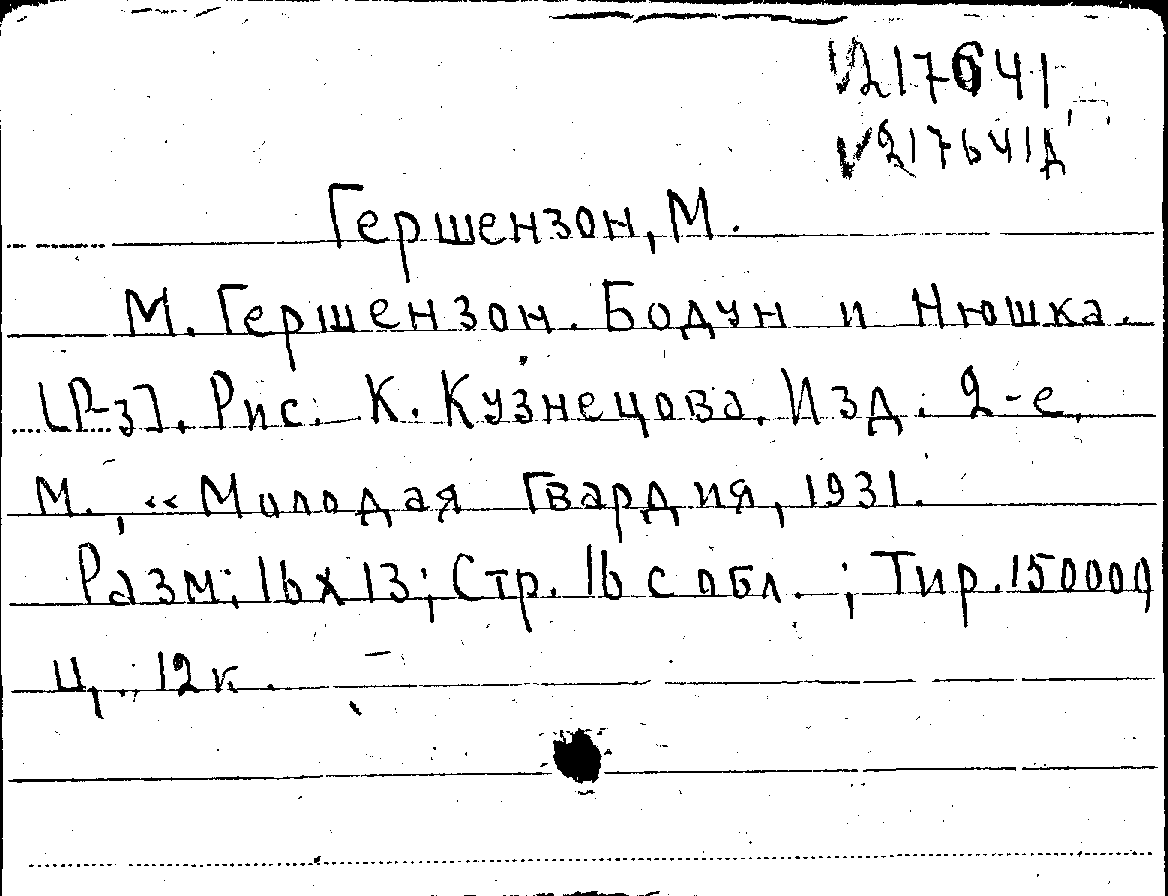 V217641
V217641д
Гершензон, М.
М. Гершензон. Бодун и Нюшка.
[Р-з]. Рис. К. Кузнецова. Изд. 2-е.
М., «Молодая Гвардия, 1931.
Разм; 16х13; Стр. 16 с обл. ; Тир. 150000
Ц,.; 12 к.